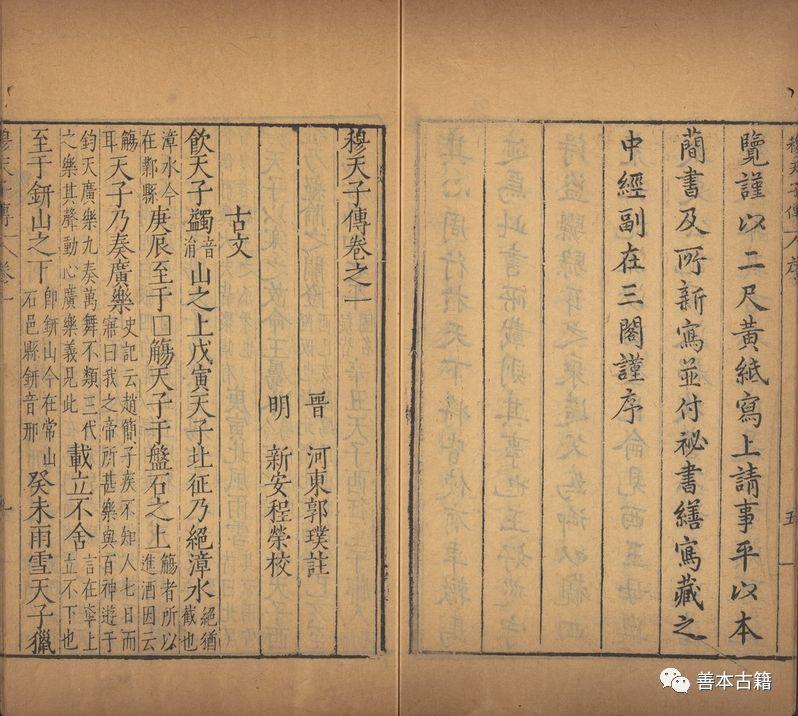 穆天子傳 序 五
覽謹以二尺黃紙寫上請事平以本
蕳書及所新寫並付祕書繕寫藏之
中經副在三閣謹序
穆天子傳卷之一
晉 河東郭璞註
明 新安程榮校
古文
飲天子蠲音涓山之上戊寅天子北征乃絕漳水絕猶截也
漳水今在鄴縣庚辰至于□觴天子于盤石之上觴者所以進酒因云
觴耳天子乃奏廣樂史記云趙簡子疾不知人七日而寤曰我之帝所甚樂與百神遊于
鈞天廣樂九奏萬舞不類三代之樂其聲動心廣樂義見此載立不舍言在上立不下也
至于鈃山之下即鈃山今在常山石邑縣鈃音邢癸未雨雪天子獵
穆天子傳 卷一
善本古籍